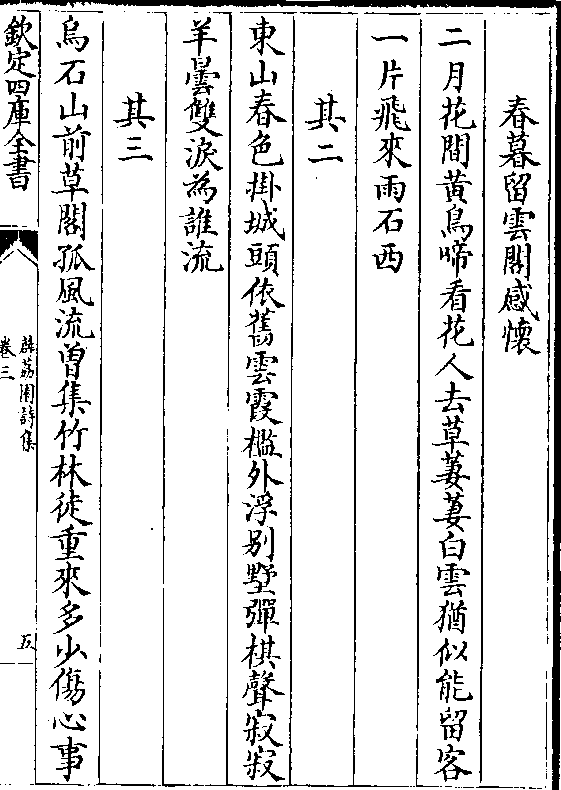 春暮留雲閣感懷
二月花間黃鳥啼看花人去草萋萋白雲猶似能留客
一片飛來雨石西
其二
東山春色掛城頭依舊雲霞檻外浮別墅彈棋聲寂寂
羊曇雙淚為誰流
其三
烏石山前草閣孤風流曽集竹林徒重來多少傷心事
欽定四庫全書
薜荔園詩集
卷三
五